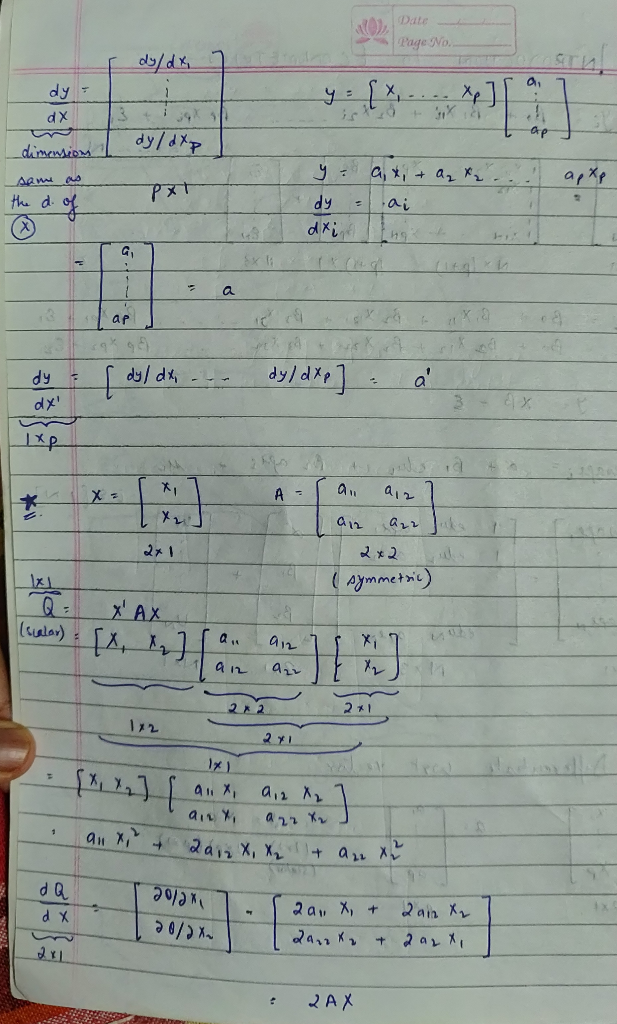 Date
Page No.
dy/dx = [ dy/dx₁ ⋮ dy/dxₚ ]
y = [ x₁ .... xₚ ] [ a₁ ⋮ aₚ ]
dimensions same as the d. of (X)
p x 1
y = a₁x₁ + a₂x₂ .... aₚxₚ
dy/dxᵢ = aᵢ
= [ a₁ ⋮ aₚ ] = a
dy/dx' = [ dy/dx₁ --- dy/dxₚ ] = a'
1 x p
* x = [ x₁ x₂ ] A = [ a₁₁ a₁₂ a₁₂ a₂₂ ]
2 x 1 2 x 2
(symmetric)
1x1
Q = X'AX
(scalar) = [ x₁ x₂ ] [ a₁₁ a₁₂ a₁₂ a₂₂ ] [ x₁ x₂ ]
2 x 2 2 x 1
1 x 2 2 x 1
1x1
= [ x₁ x₂ ] [ a₁₁x₁ a₁₂x₂ a₁₂x₁ a₂₂x₂ ]
= a₁₁x₁² + 2a₁₂x₁x₂ + a₂₂x₂²
dQ/dX = [ ∂Q/∂x₁ ∂Q/∂x₂ ] = [ 2a₁₁x₁ + 2a₁₂x₂ 2a₂₂x₂ + 2a₂x₁ ]
2x1
= 2AX